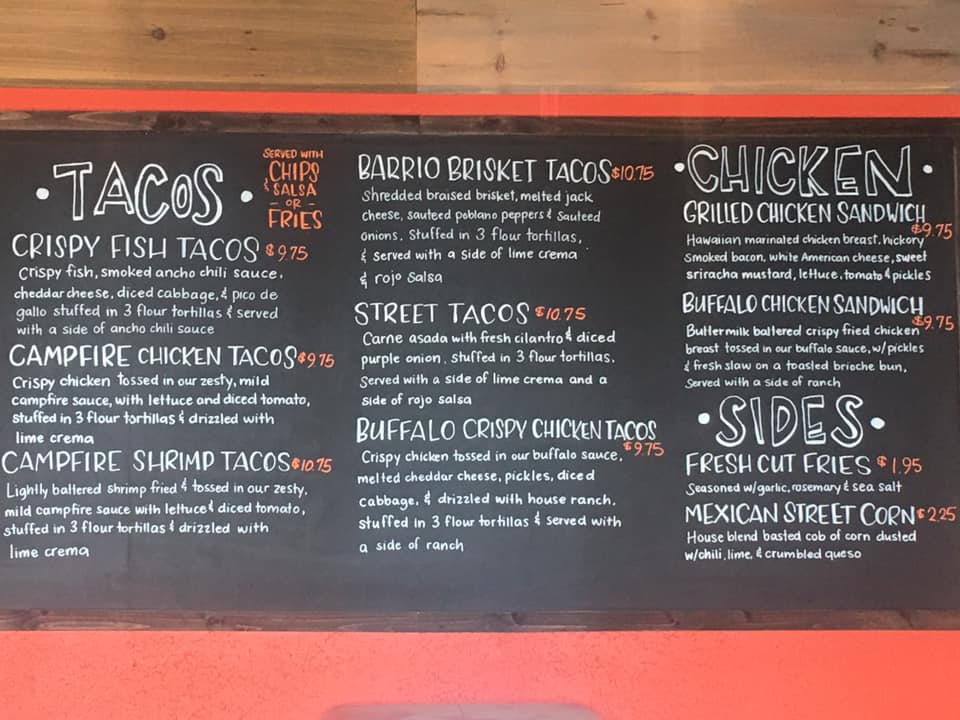 • TACOS •
SERVED WITH
CHIPS
& SALSA
- OR -
FRIES
CRISPY FISH TACOS $9.75
Crispy fish, smoked ancho chili sauce,
cheddar cheese, diced cabbage, & pico de
gallo stuffed in 3 flour tortillas & served
with a side of ancho chili sauce
CAMPFIRE CHICKEN TACOS $9.75
Crispy chicken tossed in our zesty, mild
campfire sauce, with lettuce and diced tomato,
stuffed in 3 flour tortillas & drizzled with
lime crema
CAMPFIRE SHRIMP TACOS $10.75
Lightly battered shrimp fried & tossed in our zesty,
mild campfire sauce with lettuce & diced tomato,
stuffed in 3 flour tortillas & drizzled with
lime crema
BARRIO BRISKET TACOS $10.75
Shredded braised brisket, melted jack
cheese, sauteed poblano peppers & Sauteed
onions. Stuffed in 3 flour tortillas,
& served with a side of lime crema
& rojo Salsa
STREET TACOS $10.75
Carne asada with fresh cilantro & diced
purple onion. stuffed in 3 flour tortillas.
Served with a side of lime crema and a
side of rojo salsa
BUFFALO CRISPY CHICKEN TACOS
$9.75
Crispy chicken tossed in our buffalo sauce,
melted cheddar cheese, pickles, diced
cabbage, & drizzled with house ranch,
stuffed in 3 flour tortillas & served with
a side of ranch
• CHICKEN •
GRILLED CHICKEN SANDWICH
$9.75
Hawaiian marinated chicken breast, hickory
Smoked bacon, white American cheese, sweet
sriracha mustard, lettuce, tomato & pickles
BUFFALO CHICKEN SANDWICH
$9.75
Buttermilk battered crispy fried chicken
breast tossed in our buffalo sauce, w/pickles
& fresh slaw on a toasted brioche bun,
Served with a side of ranch
• SIDES •
FRESH CUT FRIES $1.95
Seasoned w/garlic, rosemary & sea salt
MEXICAN STREET CORN $2.25
House blend basted cob of corn dusted
w/chili, lime, & crumbled queso